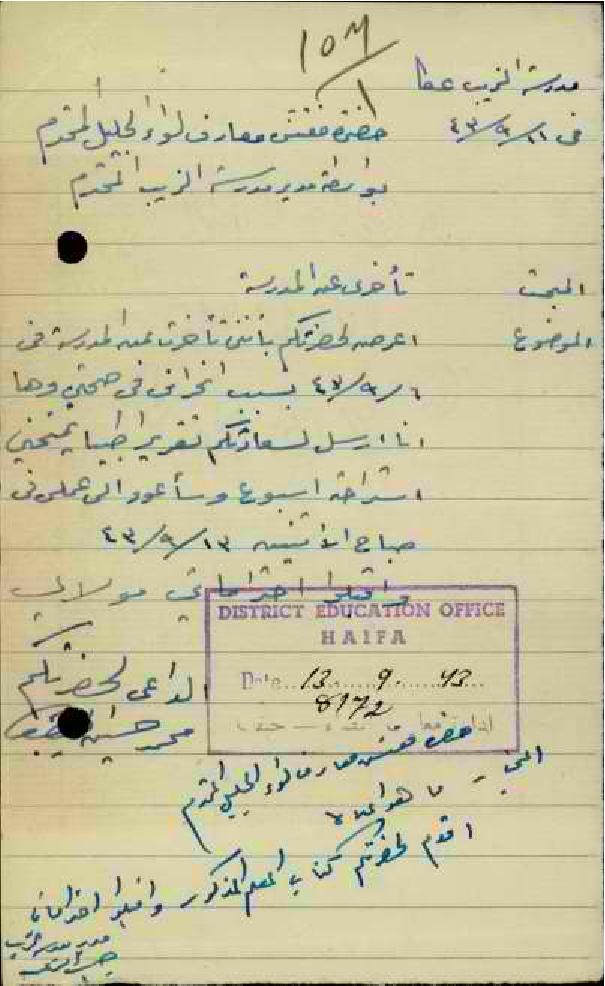 مدرسة الزيب عكا
في ١١/٩/٤٣
حضرة مفتش معارف لواء الجليل المحترم
بواسطة مدير مدرسة الزيب المحترم
المبحث تأخري عن المدرسة
الموضوع اعرض لحضرتكم بأنني تأخرت عن المدرسة في
٦/٩/٤٣ بسبب انحراف في صحتي وها
انا ارسل لسعادتكم تقريرا طبيا يمنحني
استراحة اسبوع وسأعود الى عملي في
صباح الاثنين ١٣/٩/٤٣
واقبلوا احتراماتي مولاي
DISTRICT EDUCATION OFFICE
HAIFA
Date 13 9 43
8172
الداعي لحضرتكم
محمد حسين
حضرة مفتش معارف لواء الجليل المحترم
المبحث - ما هو اعلاه
اقدم لحضرتكم كتاب المعلم المذكور واقبلوا احترامي
مدير مدرسة الزيب